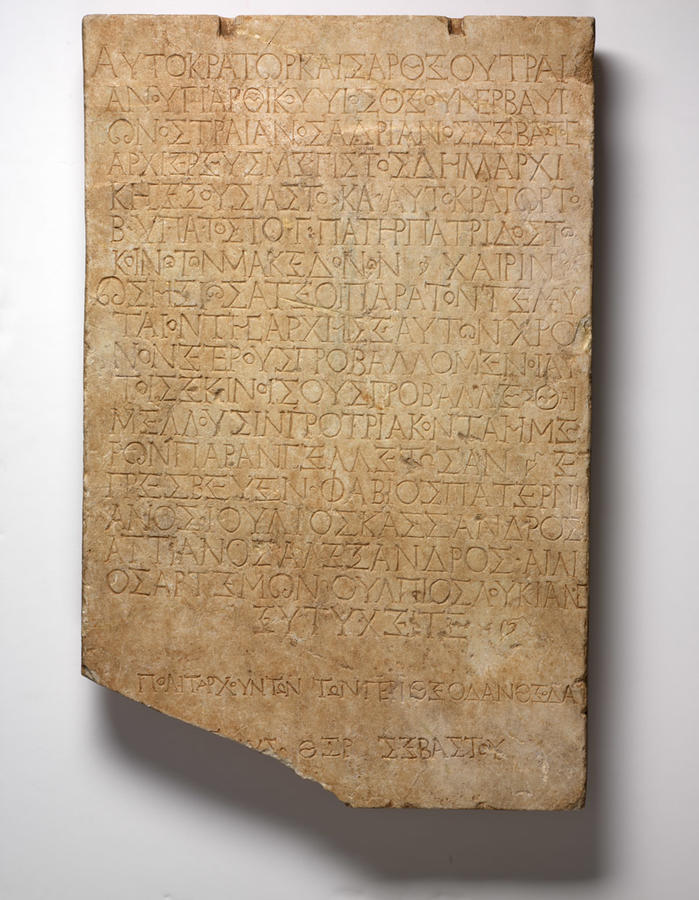 ΑΥΤΟΚΡΑΤΩΡΚΑΙΣΑΡΘΕΟΥΤΡΑΙ
ΑΝΟΥΠΑΡΘΙΚΟΥΥΙΟΣΘΕΟΥΝΕΡΒΑΥΙ
ΩΝΟΣΤΡΑΙΑΝΟΣΑΔΡΙΑΝΟΣΣΕΒΑΣΤΣ
ΑΡΧΙΕΡΕΥΣΜΕΓΙΣΤΟΣΔΗΜΑΡΧΙ
ΚΗΣΕΞΟΥΣΙΑΣΤΟ·ΚΑ·ΑΥΤΟΚΡΑΤΩΡΤΟ
Β·ΥΠΑΤΟΣΤΟΓ·ΠΑΤΗΡΠΑΤΡΙΔΟΣΤΩ
ΚΟΙΝΩΤΩΝΜΑΚΕΔΟΝΩΝ ΧΑΙΡΙΝ
ΩΣΗΞΙΩΣΑΤΕΟΙΠΑΡΑΤΟΝΤΕΛΕΥ
ΤΑΙΟΝΤΗΣΑΡΧΗΣΕΑΥΤΩΝΧΡΟ
ΝΟΝΕΤΕΡΟΥΣΠΡΟΒΑΛΛΟΜΕΝΟΙΑΥ
ΤΟΙΣΕΚΙΝΟΙΣΟΥΣΠΡΟΒΑΛΛΕΣΘΑΙ
ΜΕΛΛΟΥΣΙΝΠΡΟΤΡΙΑΚΟΝΤΑΗΜΕ
ΡΩΝΠΑΡΑΝΓΕΛΛΕΤΩΣΑΝ Ε
ΠΡΕΣΒΕΥΕΝ·ΦΑΒΙΟΣΠΑΤΕΡΝΙ
ΑΝΟΣΙΟΥΛΙΟΣΚΑΣΣΑΝΔΡΟΣ
ΑΤΤΙΑΝΟΣΑΛΕΞΑΝΔΡΟΣ·ΑΙΛΙ
ΟΣΑΡΤΕΜΩΝ·ΟΥΛΠΙΟΣΛΟΥΚΙΑΝΟΣ
ΕΥΤΥΧΕΙΤΕ
ΠΟΛΙΤΑΡΧΟΥΝΤΩΝ ΤΩΝΠΕΡΙΘΕΟΔΑΝΘΕΟΔΑ
ΟΥΣ·ΘΞΡ ΣΕΒΑΣΤΟΥ